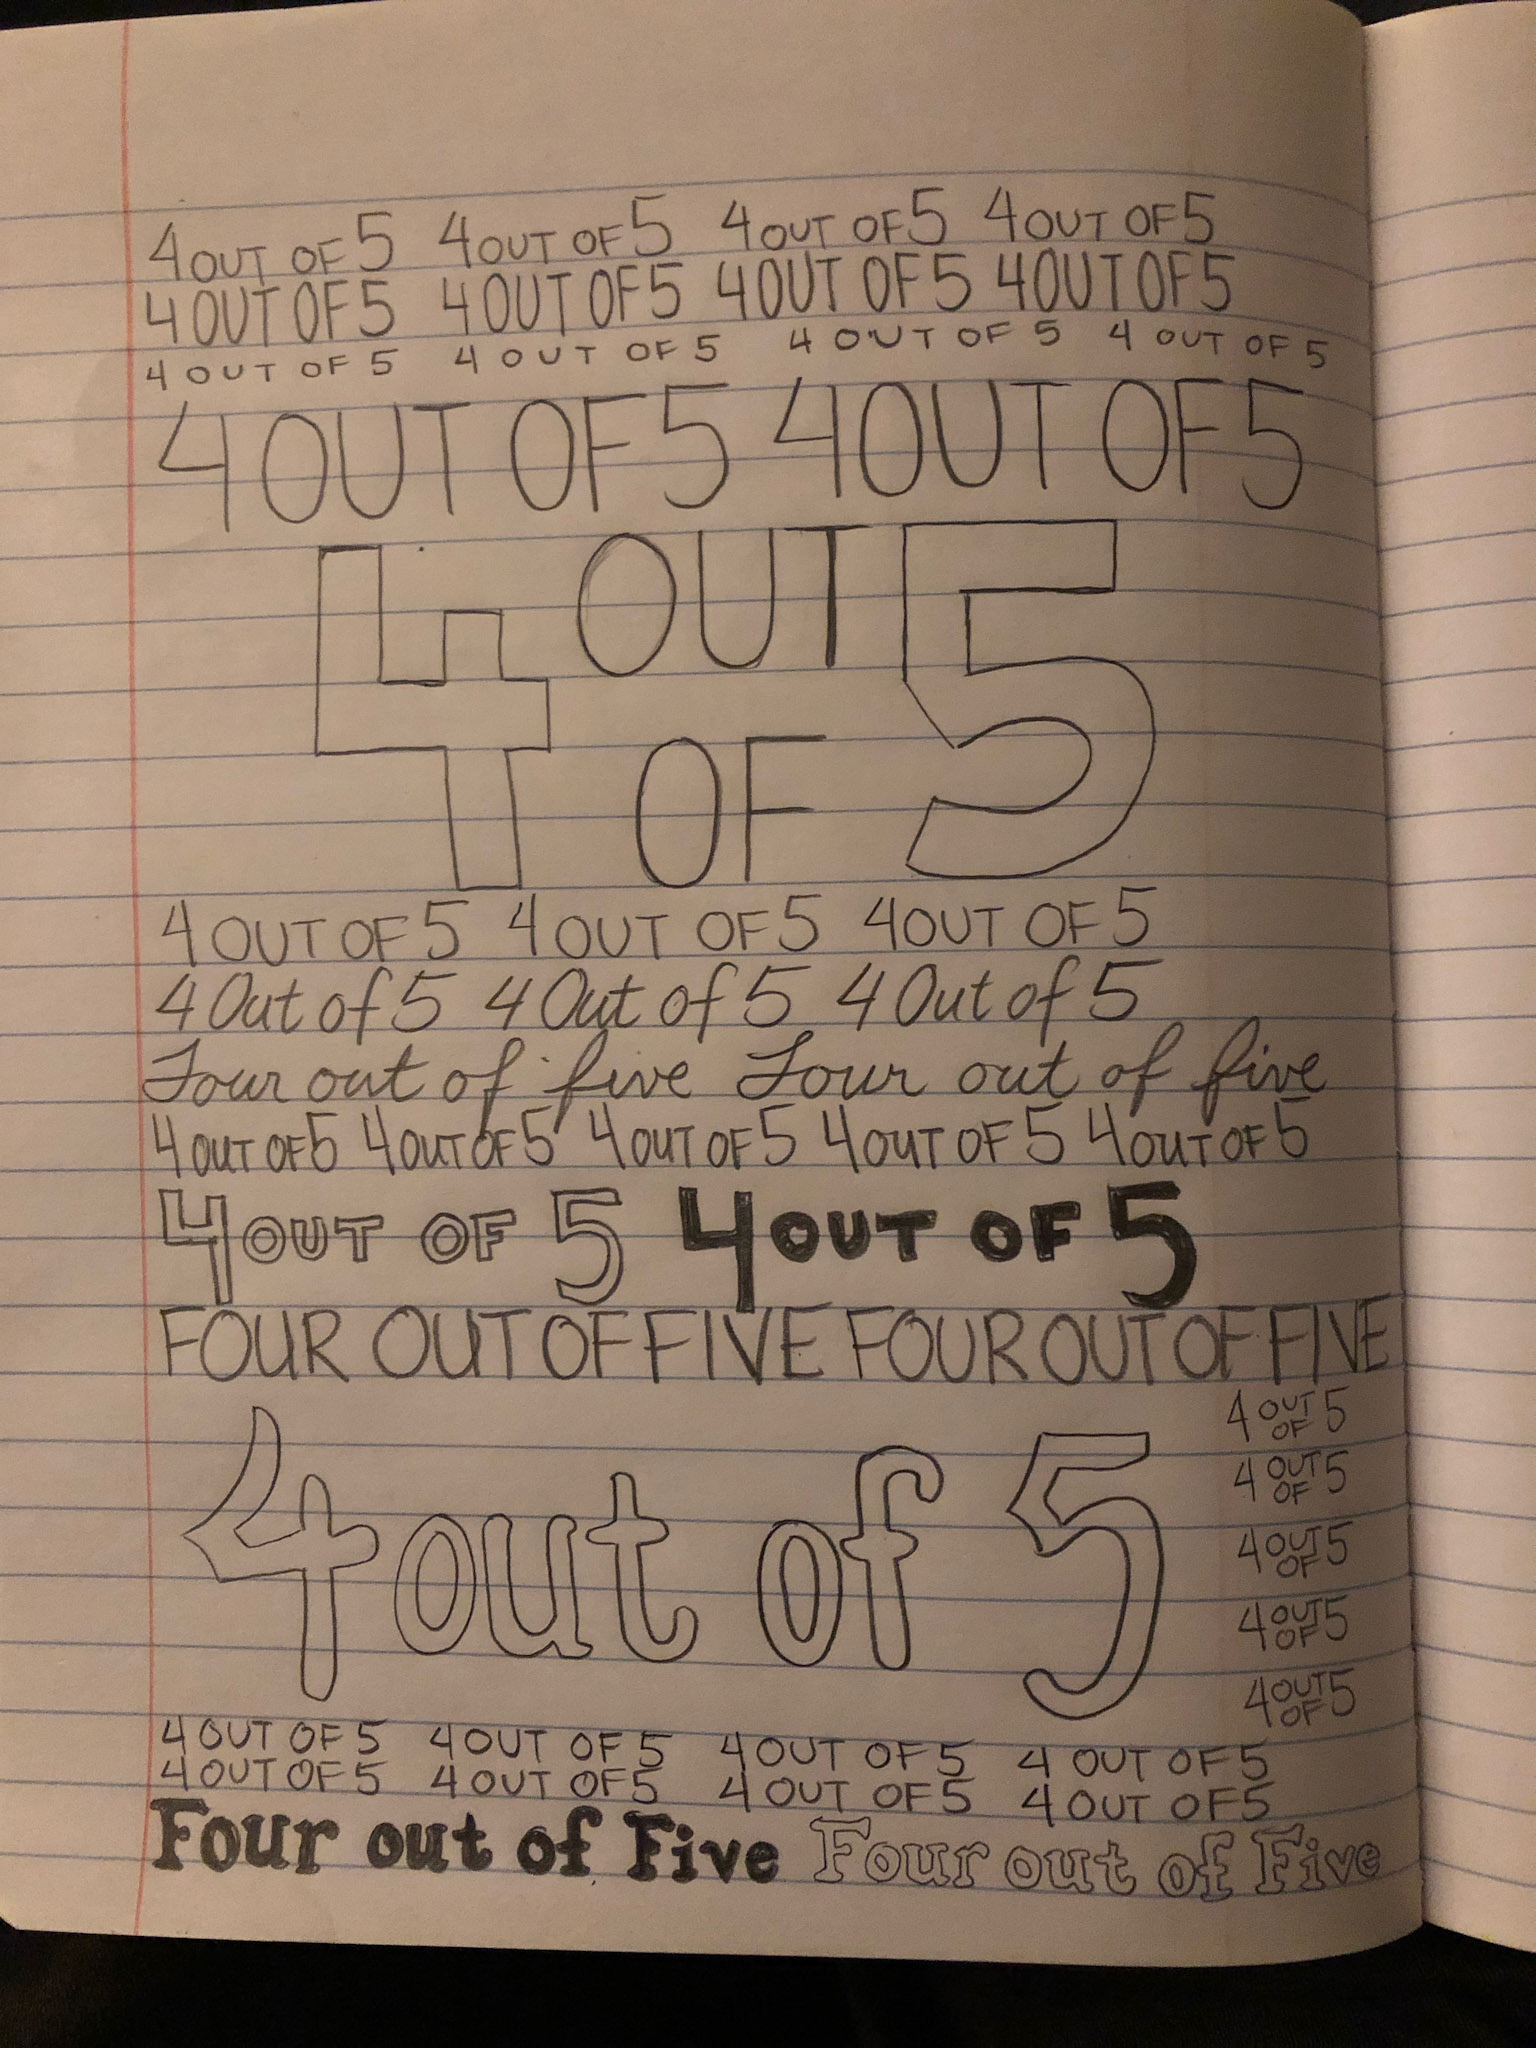 4 OUT OF 5 4 OUT OF 5 4 OUT OF 5 4 OUT OF 5
4 OUT OF 5 4 OUT OF 5 4 OUT OF 5 4 OUT OF 5
4 OUT OF 5 4 OUT OF 5 4 OUT OF 5 4 OUT OF 5
4 OUT OF 5 4 OUT OF 5
4 OUT OF 5
4 OUT OF 5 4 OUT OF 5 4 OUT OF 5
4 Out of 5 4 Out of 5 4 Out of 5
Four out of five Four out of five
4 OUT OF 5 4 OUT OF 5 4 OUT OF 5 4 OUT OF 5 4 OUT OF 5
4 OUT OF 5 4 OUT OF 5
FOUR OUT OF FIVE FOUR OUT OF FIVE
4 out of 5
4 OUT OF 5
4 OUT OF 5
4 OUT OF 5
4 OUT OF 5
4 OUT OF 5
4 OUT OF 5 4 OUT OF 5 4 OUT OF 5 4 OUT OF 5
4 OUT OF 5 4 OUT OF 5 4 OUT OF 5 4 OUT OF 5
Four out of Five Four out of Five